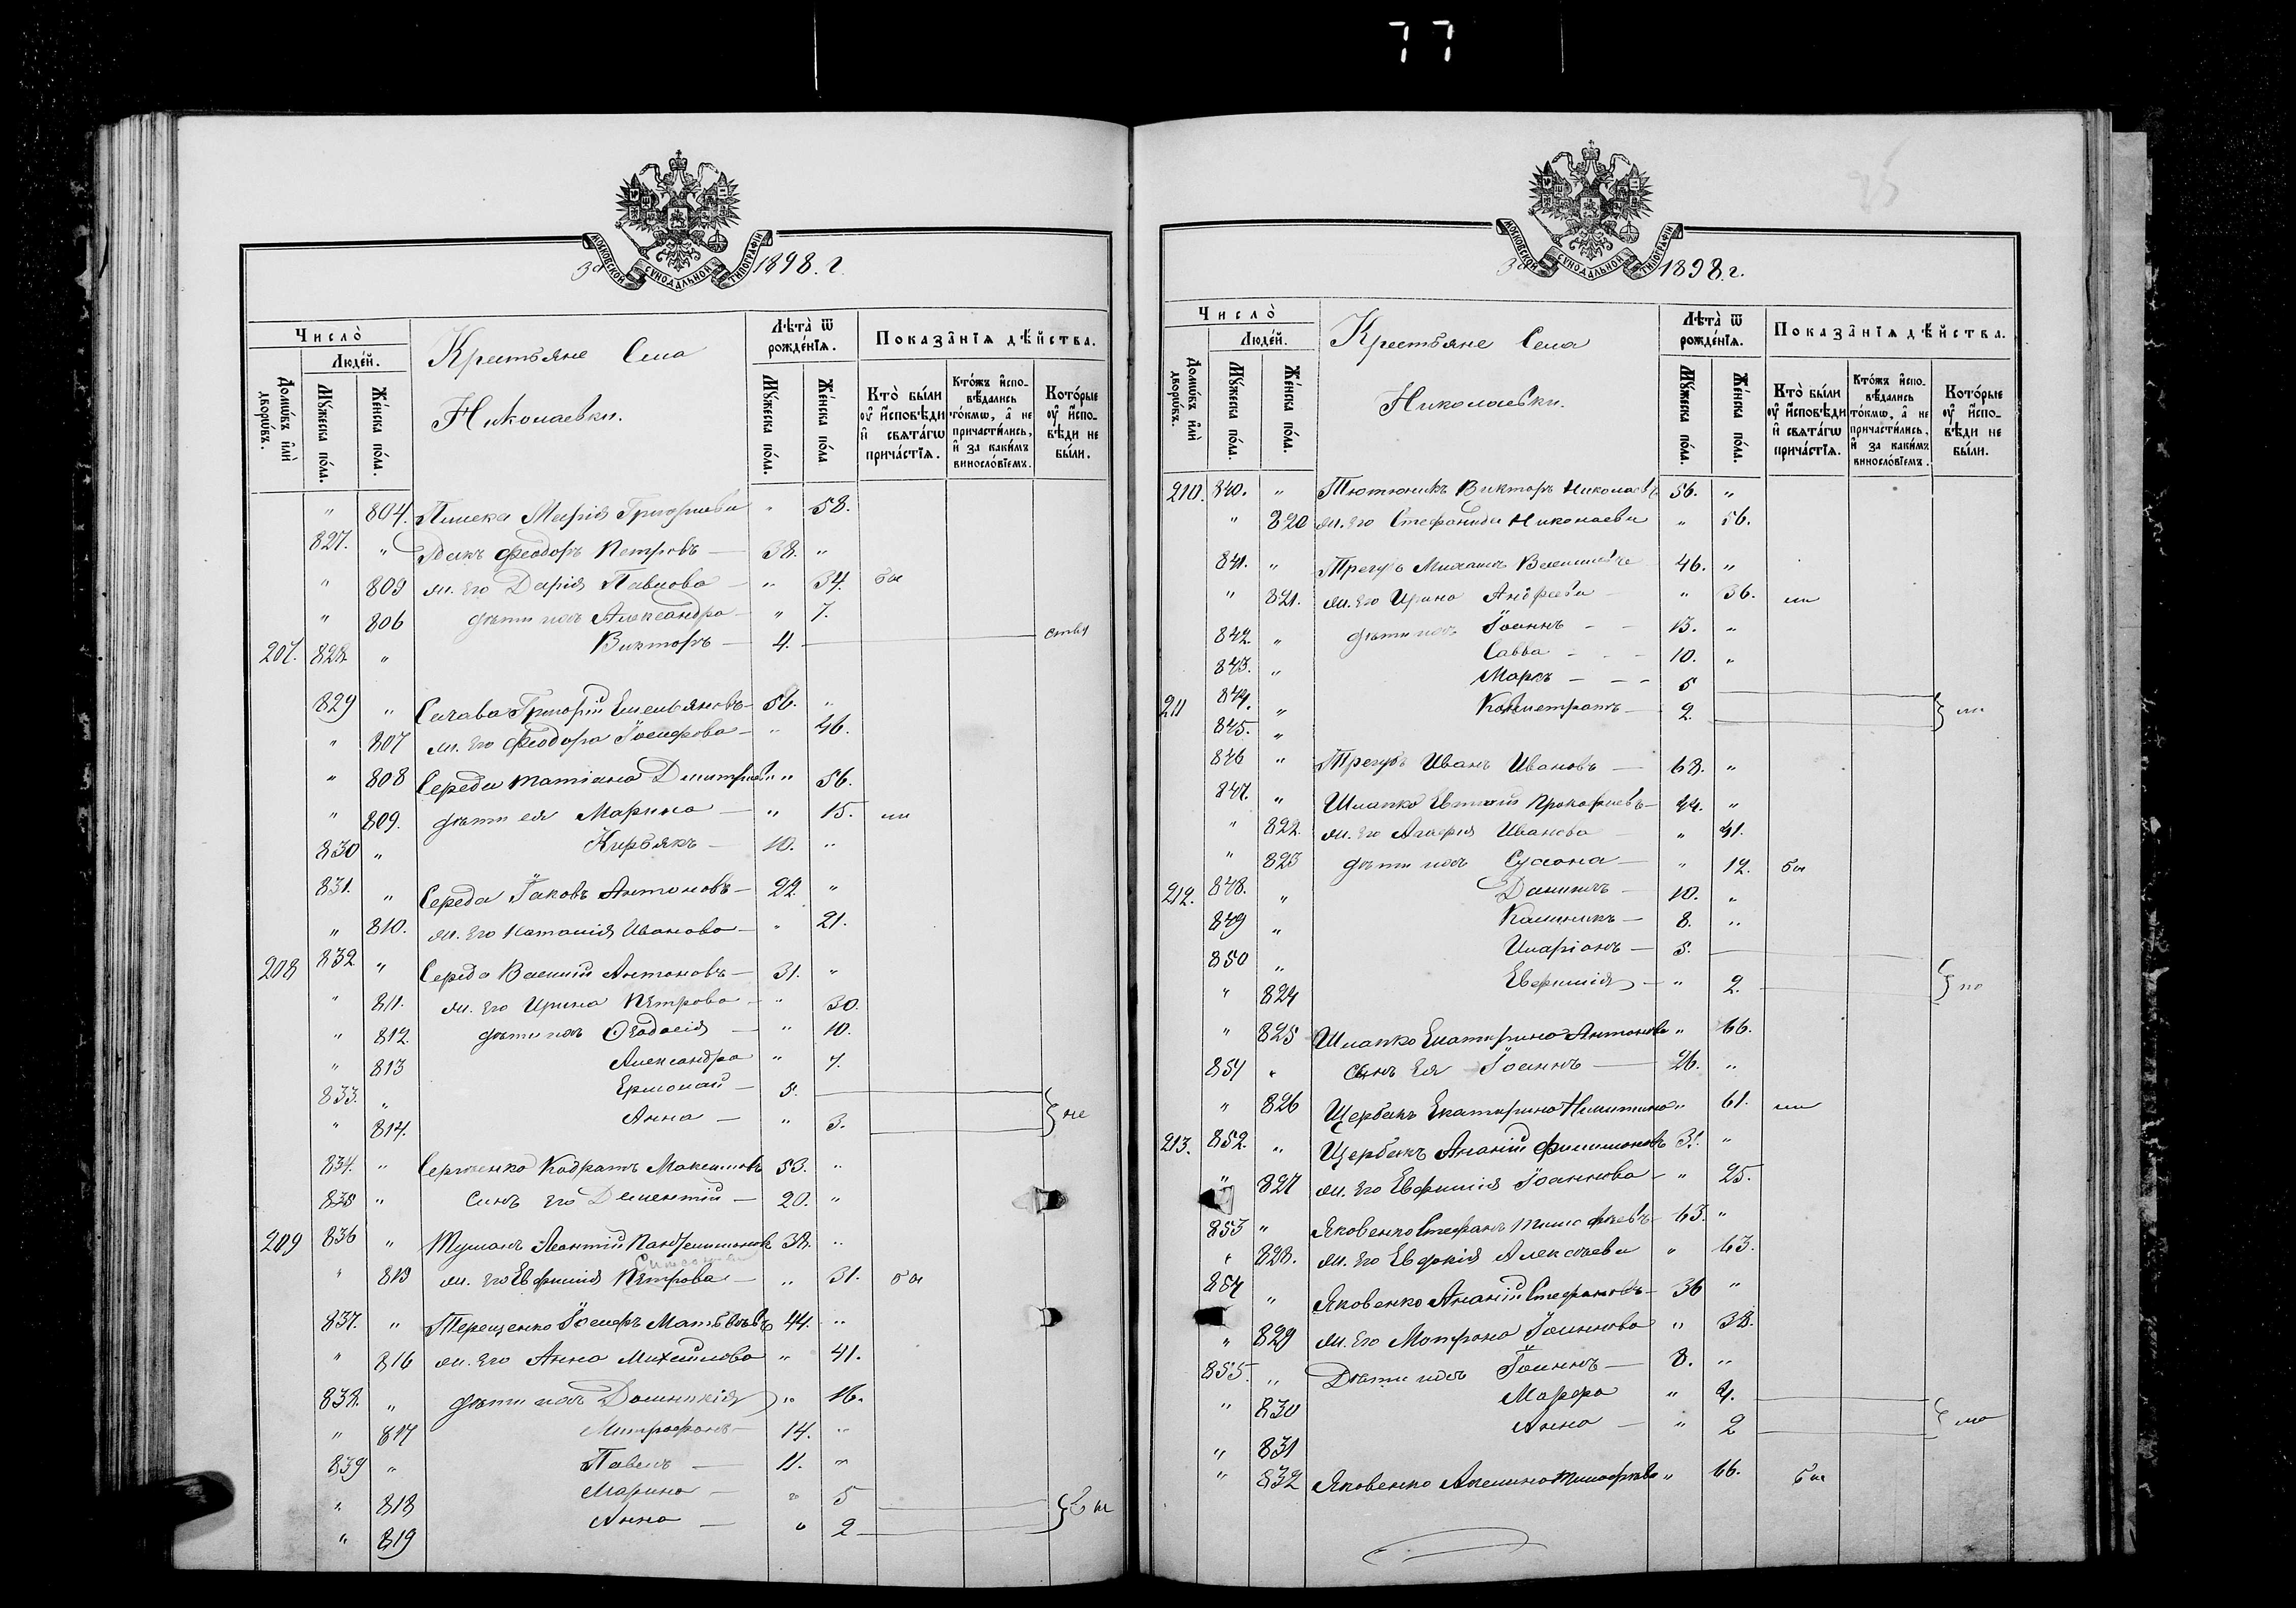 77
МОСКОВСКОЙ СѴНОДАЛЬНОЙ ТИПОГРАФІИ
За 1898. г.
Число̀
Людей.
Домѡвъ илѝ дворѡвъ.
Мꙋжеска пола.
Женска пола.
Крестьяне Села
Николаевки.
Лѣта̀ ѿ рождéнїѧ.
Мꙋжеска пола.
Женска пола
Показа̑нїѧ дѣ́йства.
Кто̀ были ᲂу҆ и҆сповѣди и҆ свѧта́гѡ прича́стїѧ.
Кто́жъ и҆сповѣдались то́кмѡ, а҆ не причасти́лись, и҆ за каки́мъ винослóвїемъ.
Кото́рые ᲂу҆ и҆сповѣди не были.
" 804. Марія Григориева " 58.
827. " Феодоръ Петровъ — 38. "
" 809 ж. его Дарія Павлова — " 34. бы
" 806 дѣти ихъ Александра — " 7.
207. 828 " Викторъ — 4.
829 " Григорій Емельяновъ — 56. "
" 807 ж. его Феодора Іосифова — " 46.
" 808 Середа Татіана Дмитриева " 56.
" 809. дѣти ея Марина — " 15. ли
830 " Кирьякъ — 10. "
831. " Середа Іаковъ Антоновъ — 22. "
" 810. ж. его Наталія Иванова — " 21.
208 832 " Середа Василій Антоновъ — 31. "
" 811. ж. его Ирина Петрова — " 30.
" 812. дѣти ихъ Феодосія — " 10.
" 813 Александра " 7.
833. " Ермолай — 5.
" 814. Анна — " 3. } не
834. " Сергиенко Кодратъ Максимовъ 53. "
835 " Синъ его Дементій — 20. "
209 836 " Туманъ Леонтій Пантелимоновъ 38. "
" 815 ж. его Евфимія Петрова — " 31. бы
837. " Терещенко Іосифъ Матвѣевъ 44. "
" 816 ж. его Анна Михаилова " 41.
838. " дѣти ихъ Домникія " 16.
" 817 Митрофанъ — 14. "
839 " Павелъ — 11. "
" 818 Марина — " 5
" 819 Анна — " 2 } бы
МОСКОВСКОЙ СѴНОДАЛЬНОЙ ТИПОГРАФІИ
За 1898 г.
Число̀
Людей.
Домѡвъ илѝ дворѡвъ.
Мꙋжеска пола.
Женска пола.
Крестьяне Села
Николаевки.
Лѣта̀ ѿ рождéнїѧ.
Мꙋжеска пола.
Женска пола.
Показа̑нїѧ дѣ́йства.
Кто̀ были ᲂу҆ и҆сповѣди и҆ свѧта́гѡ прича́стїѧ.
Кто́жъ и҆сповѣдались то́кмѡ, а҆ не причасти́лись, и҆ за каки́мъ винослóвїемъ.
Кото́рые ᲂу҆ и҆сповѣди не были.
210. 840. " Тютюникъ Викторъ Николаевъ 56. "
" 820 ж. его Стефанида Николаева " 56.
841. " Трегубъ Михаилъ 46. "
" 821. ж. его Ирина Андреева — " 36. ли
842. " дѣти ихъ Іоаннъ — 13. "
843. " Савва — 10. "
211 844. " Маркъ — 5
845. " 2. } ли
846 " Трегубъ Иванъ Ивановъ — 68. "
847. " Шлапко Прокофиевъ — 44. "
" 822. ж. его Агафія Иванова — " 41.
" 823 дѣти ихъ Сусана — " 12. бы
212. 848. " Даниилъ — 10. "
849 " Калиникъ — 8. "
850 " Иларіонъ — 5.
" 824 Евфимія — " 2. } не
" 825 Шлапко Екатерина Антонова " 66.
851 " Сынъ ея Іоаннъ — 26. "
" 826 Щербакъ Екатерина Никитина " 61. ли
213. 852. " Щербакъ Ананій Филимоновъ 31. "
" 827 ж. его Евфимія Іоаннова — " 25.
853 " Яковенко Стефанъ Тимофѣевъ — 63. "
" 828. ж. его Евдокія Алексѣева " 63.
854 " Яковенко Ананій Стефановъ — 36 "
" 829 ж. его Матрона Іоаннова " 38.
855. " Дѣти ихъ Іоаннъ — 8. "
" 830 Марфа " 4.
" 831 Анна — " 2
" 832 Яковенко Акилина Тимофѣева " 66. бы